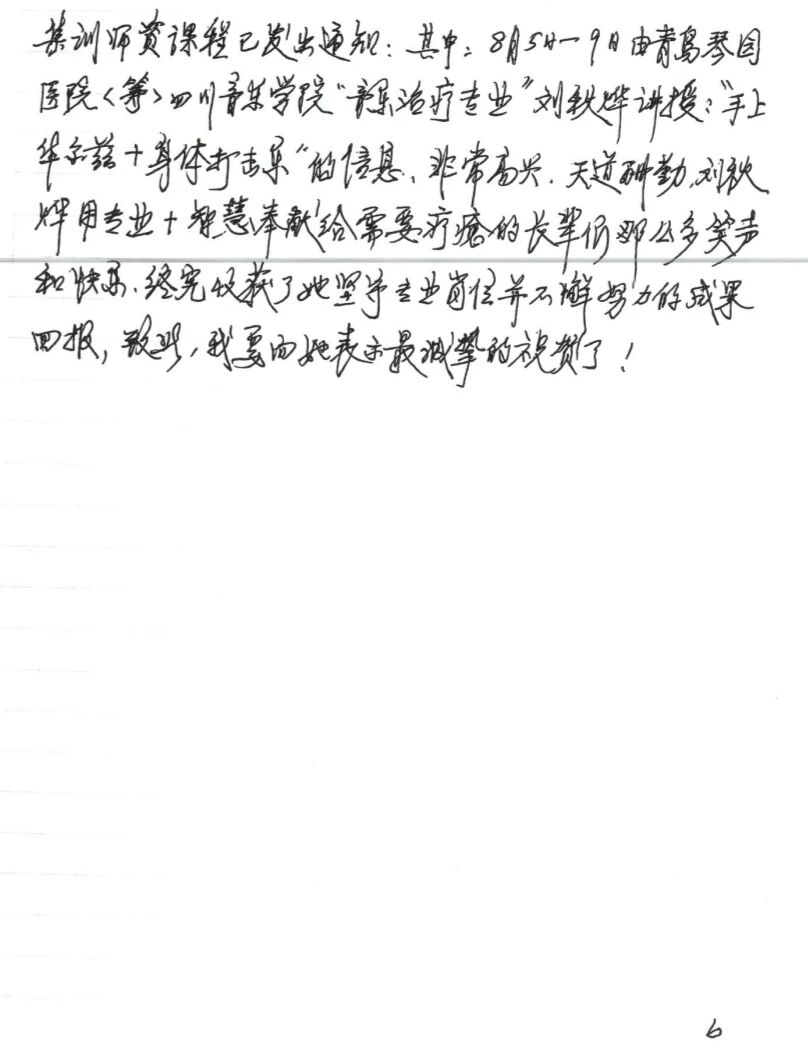 集训师资课程已发出通知：其中：8月5日—9日由青岛琴园
医院〈等〉四川音乐学院“音乐治疗专业”刘秋烨讲授：“手上
华尔兹＋身体打击乐”的信息、非常高兴．天道酬勤，刘秋
烨用专业＋智慧奉献给需要疗愈的长辈们那么多笑声
和快乐．终究收获了她坚守专业岗位并不懈努力的成果
回报，致此，我要向她表示最诚挚的祝贺了！
6